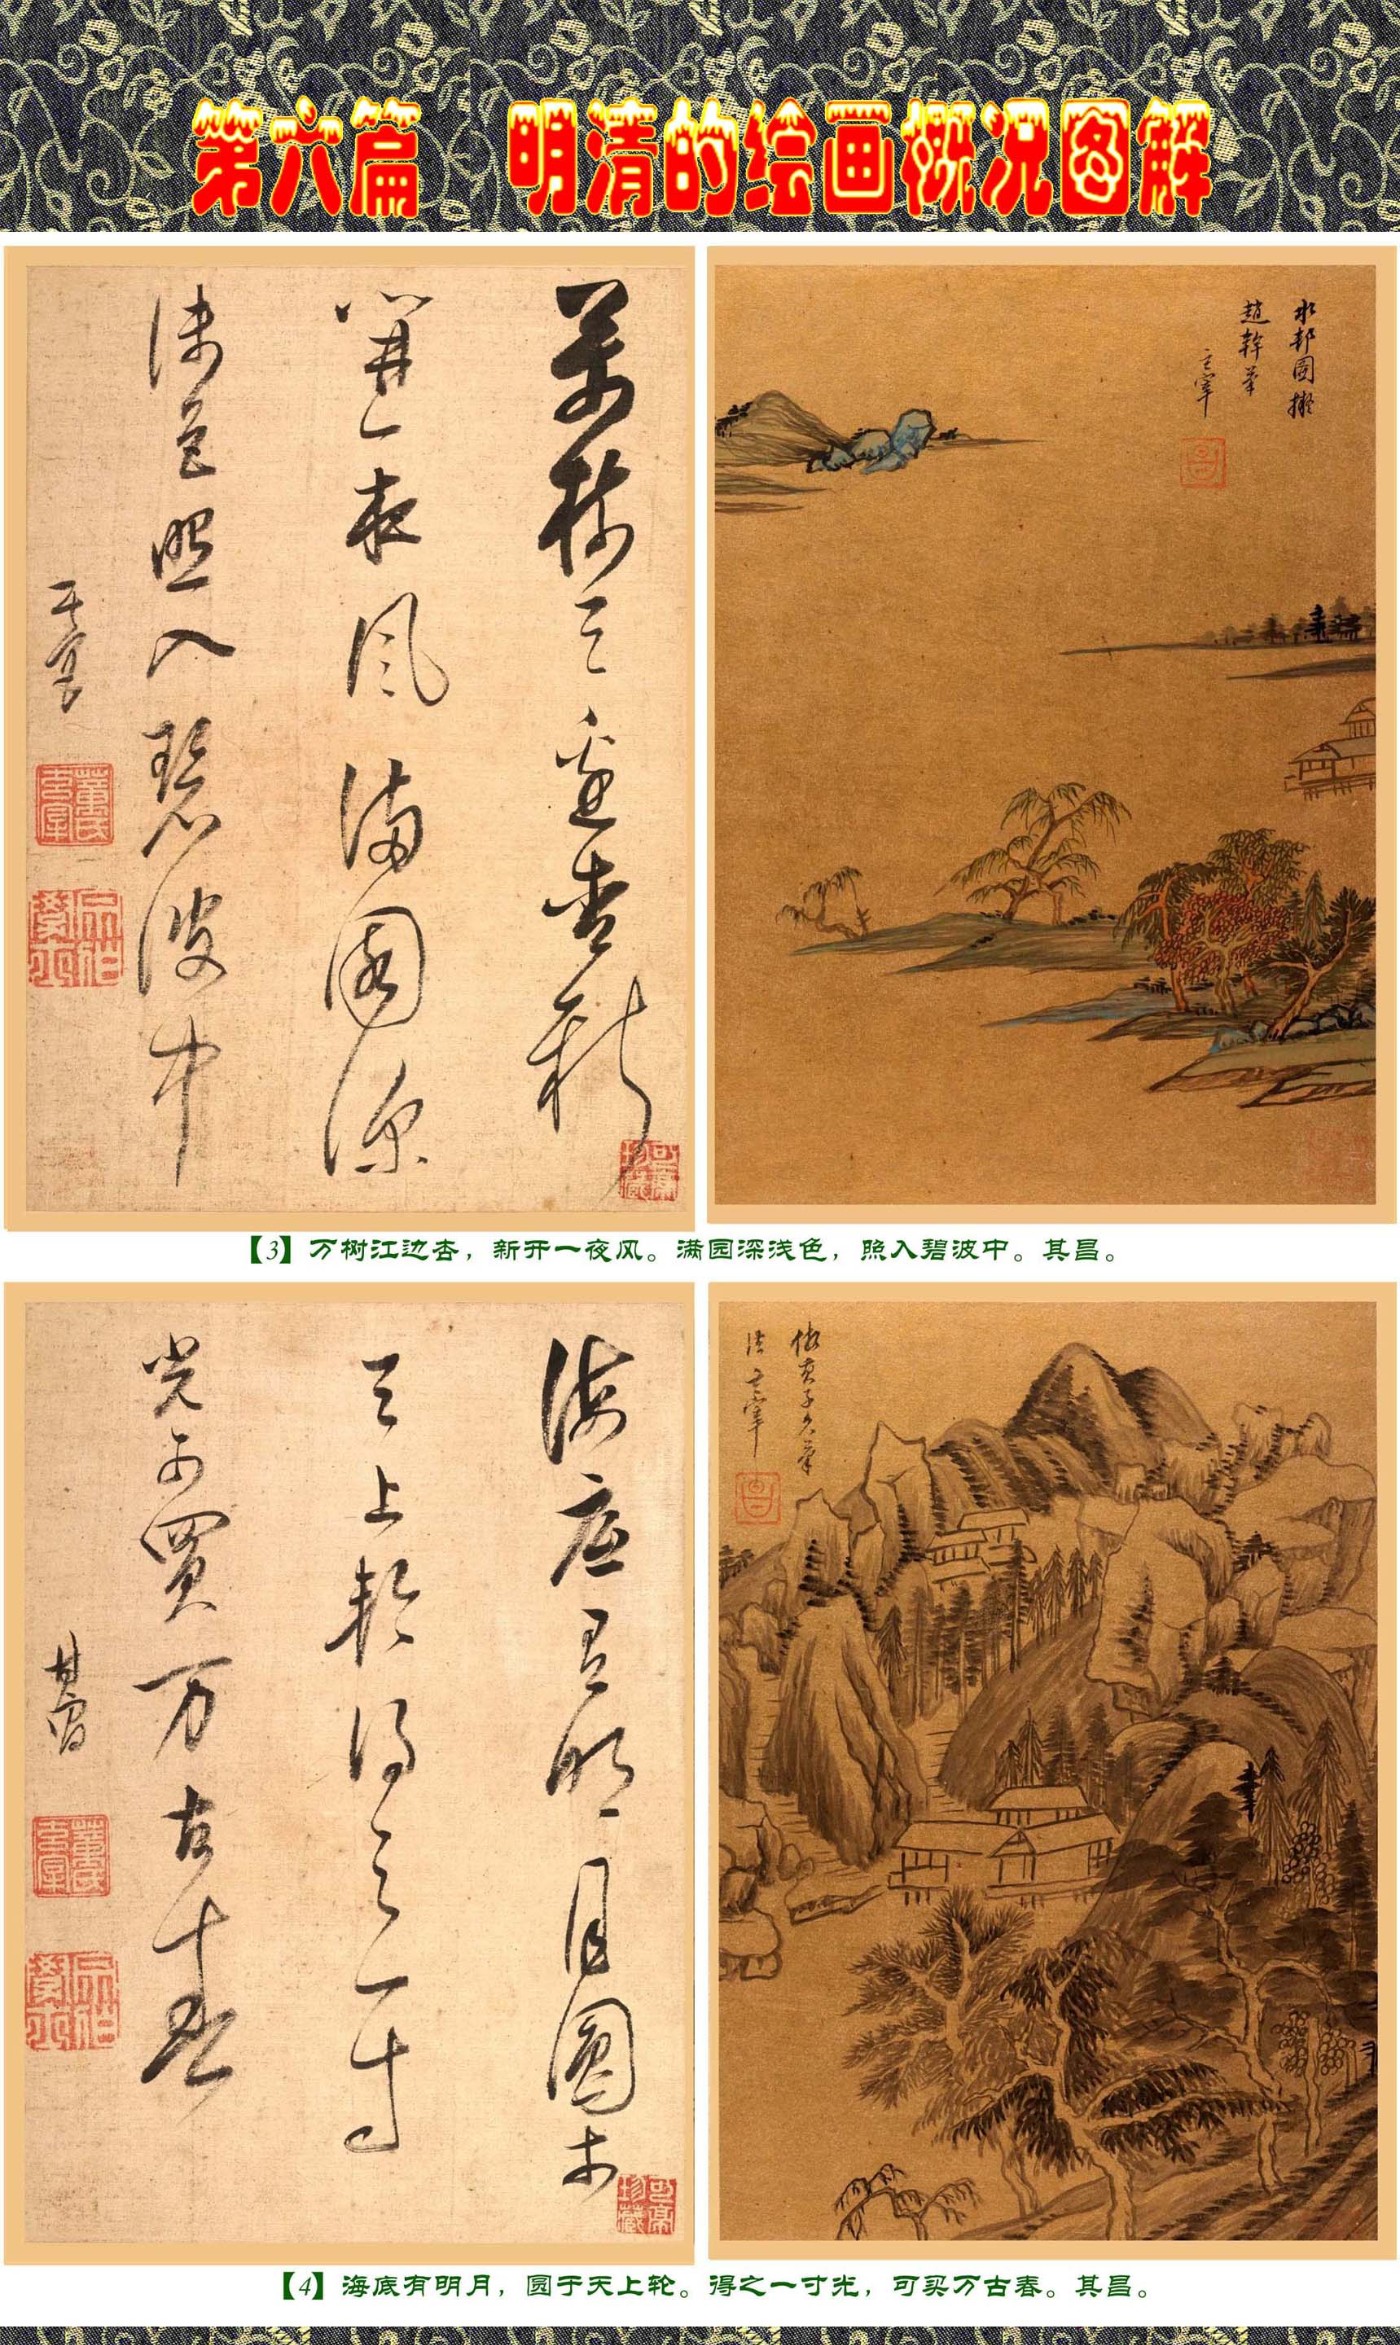 第六篇 明清的绘画概况图解
萬樹江邊杏新
開一夜風滿園深
淺色照入碧波中
其昌
董氏玄宰
水邨圖擬
趙幹筆
玄宰
昌
【3】万树江边杏，新开一夜风。满园深浅色，照入碧波中。其昌。
海底有明月圓於
天上輪得之一寸
光可買万古春
其昌
董氏玄宰
倣黃子久筆
法 玄宰
昌
【4】海底有明月，圆于天上轮。得之一寸光，可买万古春。其昌。